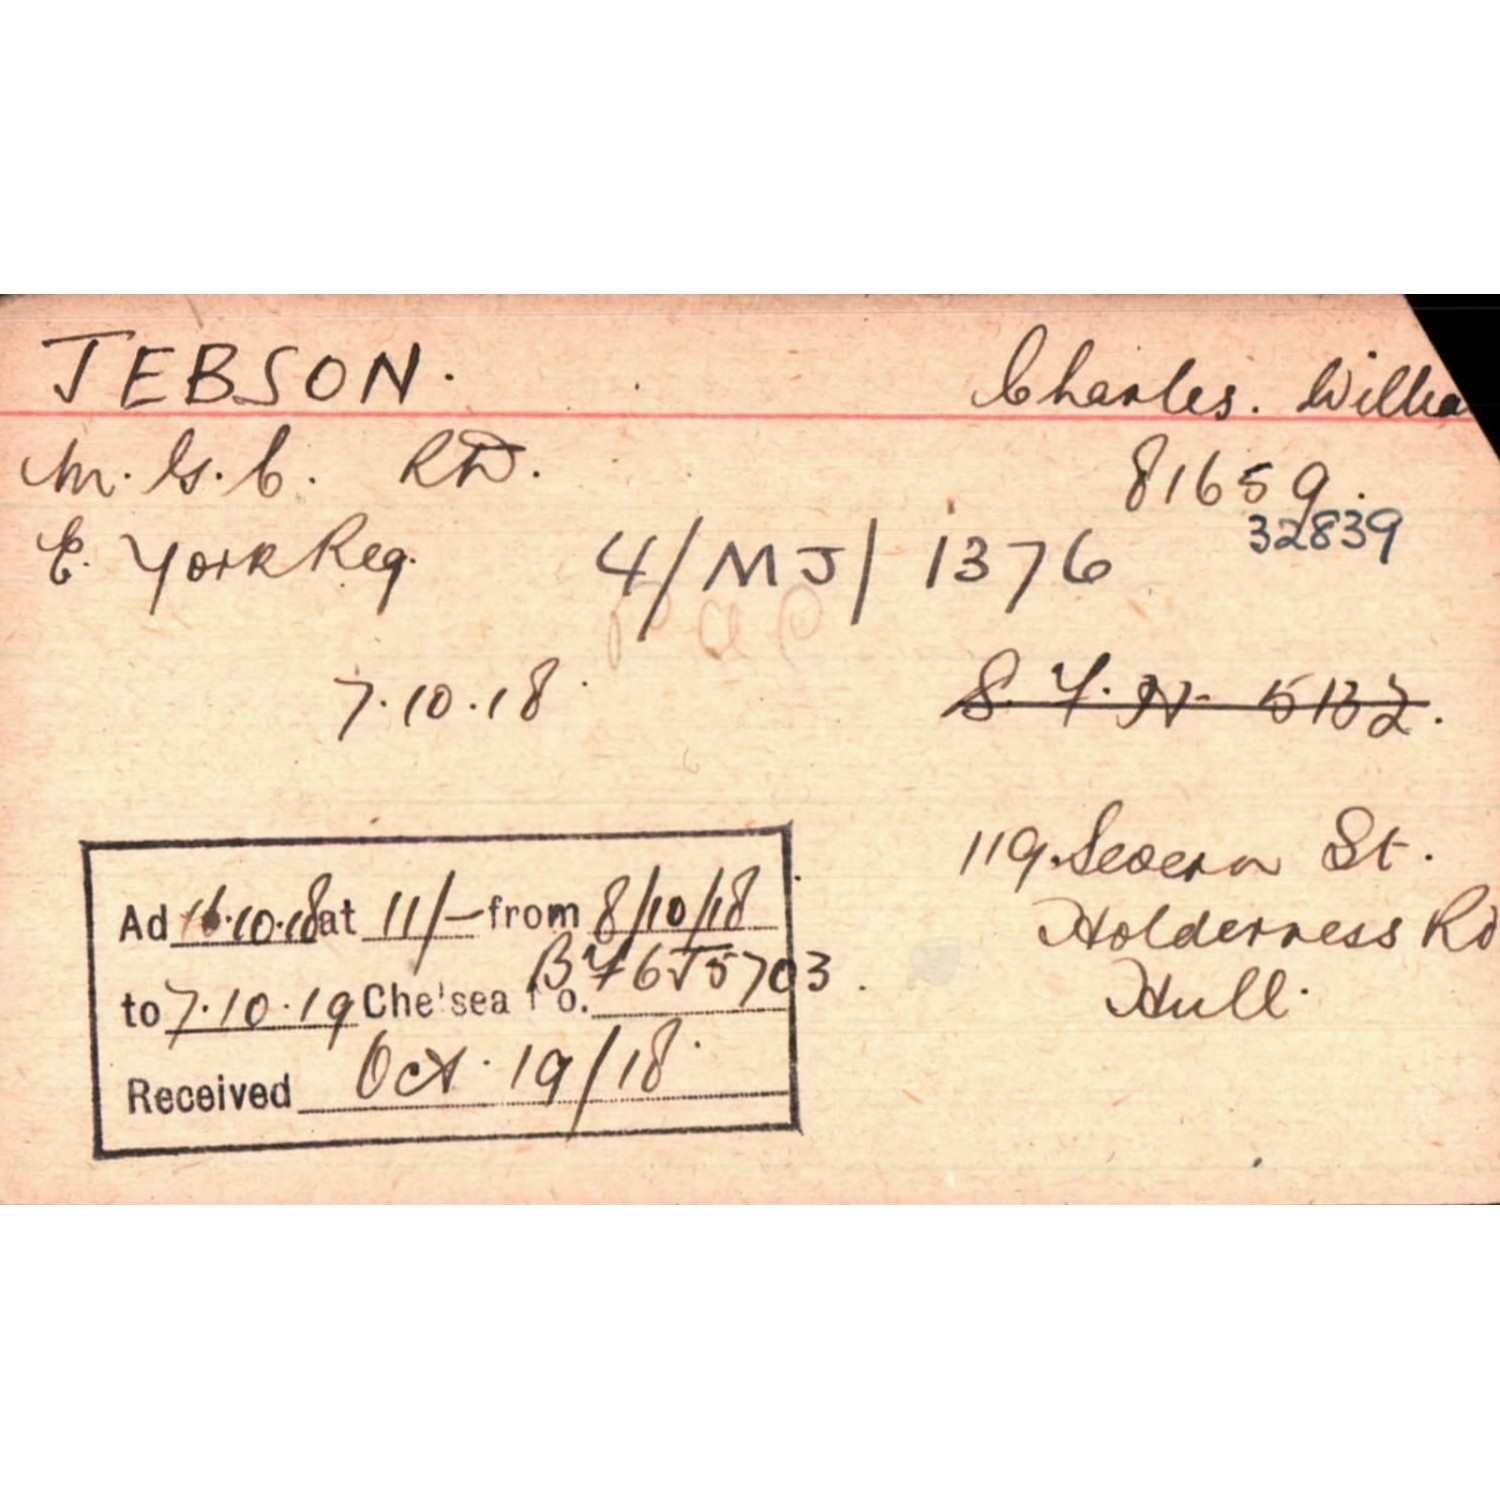 JEBSON. Charles. Willia
M.G.C. Rtd. 81659.
32839
E. York Reg. 4/MJ/1376
7.10.18 S.Y.N 5132.
119. Severn St.
Holderness Rd
Hull.
Ad 16.10.18 at 11/- from 8/10/18
to 7.10.19 Che'sea No.
Received Oct. 19/18.